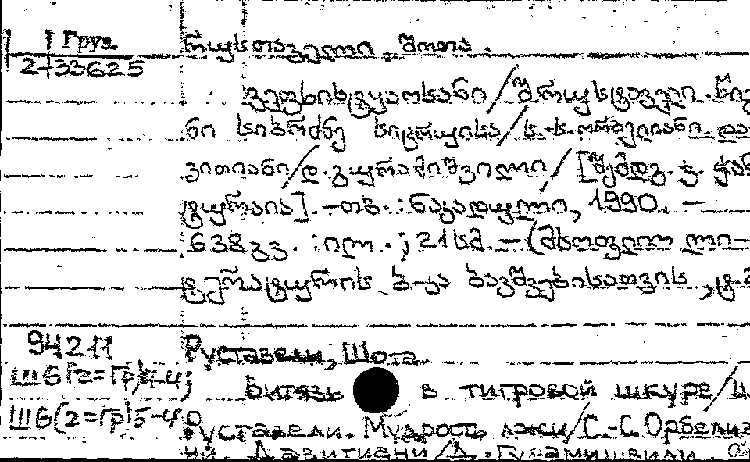 Груз.
2-33625
რუსთაველი, შოთა.
ვეფხისტყაოსანი/შ.რუსთაველი. წიგ
ნი სიბრძნე სიცრუისა/ს.-ს. ორბელიანი. და
ვითიანი/დ. გურამიშვილი/[შემდგ. ჯ. ჭან
ტურაია]. – თბ. : ნაკადული, 1990. –
638 გვ. : ილ. ; 21 სმ. – (მსოფლიო ლი-
ტერატურის ბ-კა ბავშვებისათვის,
94211
Руставели, Шота
Ш6(2=Гр)4-4;
Витязь в тигровой шкуре/Ш.
Ш6(2=Гр)5-4.0
Руставели. Мудрость лжи/С.-С. Орбелиа
ни. Давитиани/Д. Гурамишвили.